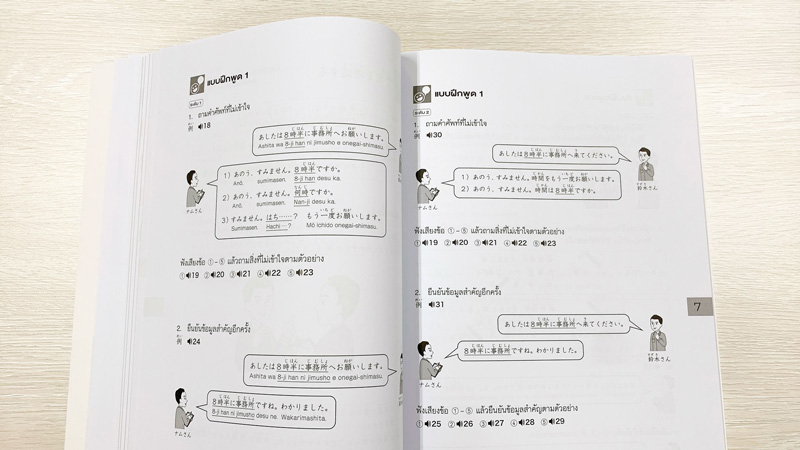 แบบฝึกพูด 1
ระดับ 1
1. ถามคำศัพท์ที่ไม่เข้าใจ
例 18
あしたは8時半に事務所へお願いします。
Ashita wa 8-ji han ni jimusho e onegai-shimasu.
1）あのう、すみません。8時半ですか。
Anō, sumimasen. 8-ji han desu ka.
2）あのう、すみません。何時ですか。
Anō, sumimasen. Nan-ji desu ka.
3）すみません。はち……？ もう一度お願いします。
Sumimasen. Hachi…? Mō ichido onegai-shimasu.
ナムさん
ฟังเสียงข้อ ①-⑤ แล้วถามสิ่งที่ไม่เข้าใจตามตัวอย่าง
①19 ②20 ③21 ④22 ⑤23
2. ยืนยันข้อมูลสำคัญอีกครั้ง
例 24
あしたは8時半に事務所へお願いします。
Ashita wa 8-ji han ni jimusho e onegai-shimasu.
8時半に事務所ですね。わかりました。
8-ji han ni jimusho desu ne. Wakarimashita.
ナムさん
แบบฝึกพูด 1
ระดับ 2
1. ถามคำศัพท์ที่ไม่เข้าใจ
例 30
あしたは8時半に事務所へ来てください。
鈴木さん
1）あのう、すみません。時間をもう一度お願いします。
2）あのう、すみません。時間は8時半ですか。
ナムさん
ฟังเสียงข้อ ①-⑤ แล้วถามสิ่งที่ไม่เข้าใจตามตัวอย่าง
①19 ②20 ③21 ④22 ⑤23
2. ยืนยันข้อมูลสำคัญอีกครั้ง
例 31
7
あしたは8時半に事務所へ来てください。
鈴木さん
8時半に事務所ですね。わかりました。
ナムさん
ฟังเสียงข้อ ①-⑤ แล้วยืนยันข้อมูลสำคัญตามตัวอย่าง
①25 ②26 ③27 ④28 ⑤29